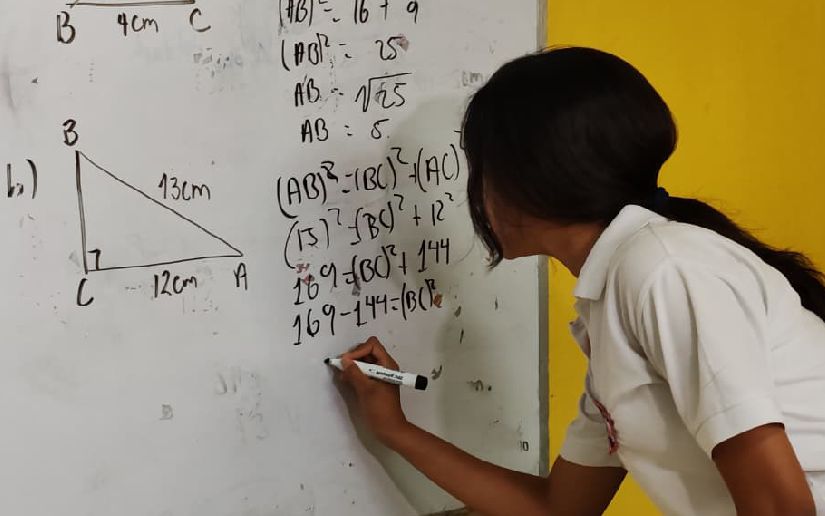 B 4cm C
(AB)² = 16 + 9
(AB)² = 25
AB = √25
AB = 5
b.)
B
13cm
C 12cm A
(AB)² = (BC)² + (AC)
(13)² = (BC)² + 12²
169 = (BC)² + 144
169 - 144 = (BC)²